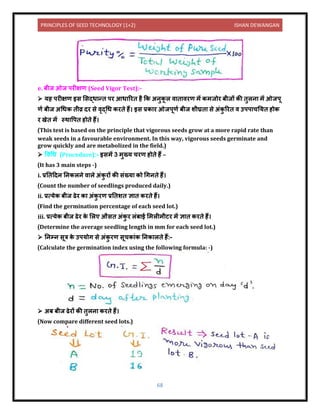 PRINCIPLES OF SEED TECHNOLOGY (1+2) ISHAN DEWANGAN
Purity% = Weight of Pure Seed / Total Weight of Working Sample
e. बीज ओज परीक्षण (Seed Vigor Test):-
➢ यह परीक्षण इस सिद्धान्त पर आधारित है कि अनुकूल वातावरण में कमजोर बीजों की तुलना में ओजपूर्ण बीज अधिक तीव्र दर से वृद्धि करते हैं। इस प्रकार ओजपूर्ण बीज शीघ्रता से अंकुरित व उपापचयित होकर खेत में स्थापित होते हैं।
(This test is based on the principle that vigorous seeds grow at a more rapid rate than
weak seeds in a favourable environment. In this way, vigorous seeds germinate and
grow quickly and are metabolized in the field.)
➢ विधि (Procedure):- इसमें 3 मुख्य चरण होते हैं –
(It has 3 main steps -)
i. प्रतिदिन निकलने वाले अंकुरों की संख्या को गिनते हैं।
(Count the number of seedlings produced daily.)
ii. प्रत्येक बीज ढेर का अंकुरण प्रतिशत ज्ञात करते हैं।
(Find the germination percentage of each seed lot.)
iii. प्रत्येक बीज ढेर के लिए औसत अंकुर लंबाई मिलीमीटर में ज्ञात करते हैं।
(Determine the average seedling length in mm for each seed lot.)
➢ निम्न सूत्र के उपयोग से अंकुरण सूचकांक निकालते हैं:-
(Calculate the germination index using the following formula: -)
G.I. = Σ n/d
n = No. of Seedlings emerging on day 'd'.
d = day after planting
➢ अब बीज ढेरों की तुलना करते हैं।
(Now compare different seed lots.)
Seed Lot G.I. Result ⇒ Seed lot-A is
A 19 more Vigorous than seed
B 16 lot-B.
68